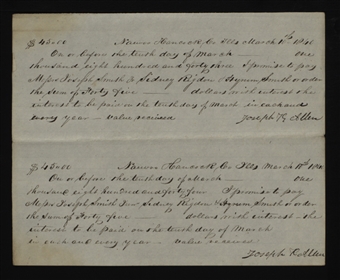 $45.00 Nauvoo Hancock Co. Ills March 10th 1840
On or before the tenth day of March one
thousand eight hundred and forty three I promise to pay
Messrs Joseph Smith Sidney Rigdon & Hyrum Smith or order
the sum of Forty five dollars with interest the
interest to be paid on the tenth day of March in each and
every year — value received
Joseph R Allen
$45.00 Nauvoo Hancock Co. Ills March 10th
On or before the tenth day of March one
thousand eight hundred and forty four I promise to pay
Messrs Joseph Smith Junr Sidney Rigdon & Hyrum Smith or order
the sum of Forty five dollars with interest the
interest to be paid on the tenth day of March
in each and every year — value received
Joseph R Allen